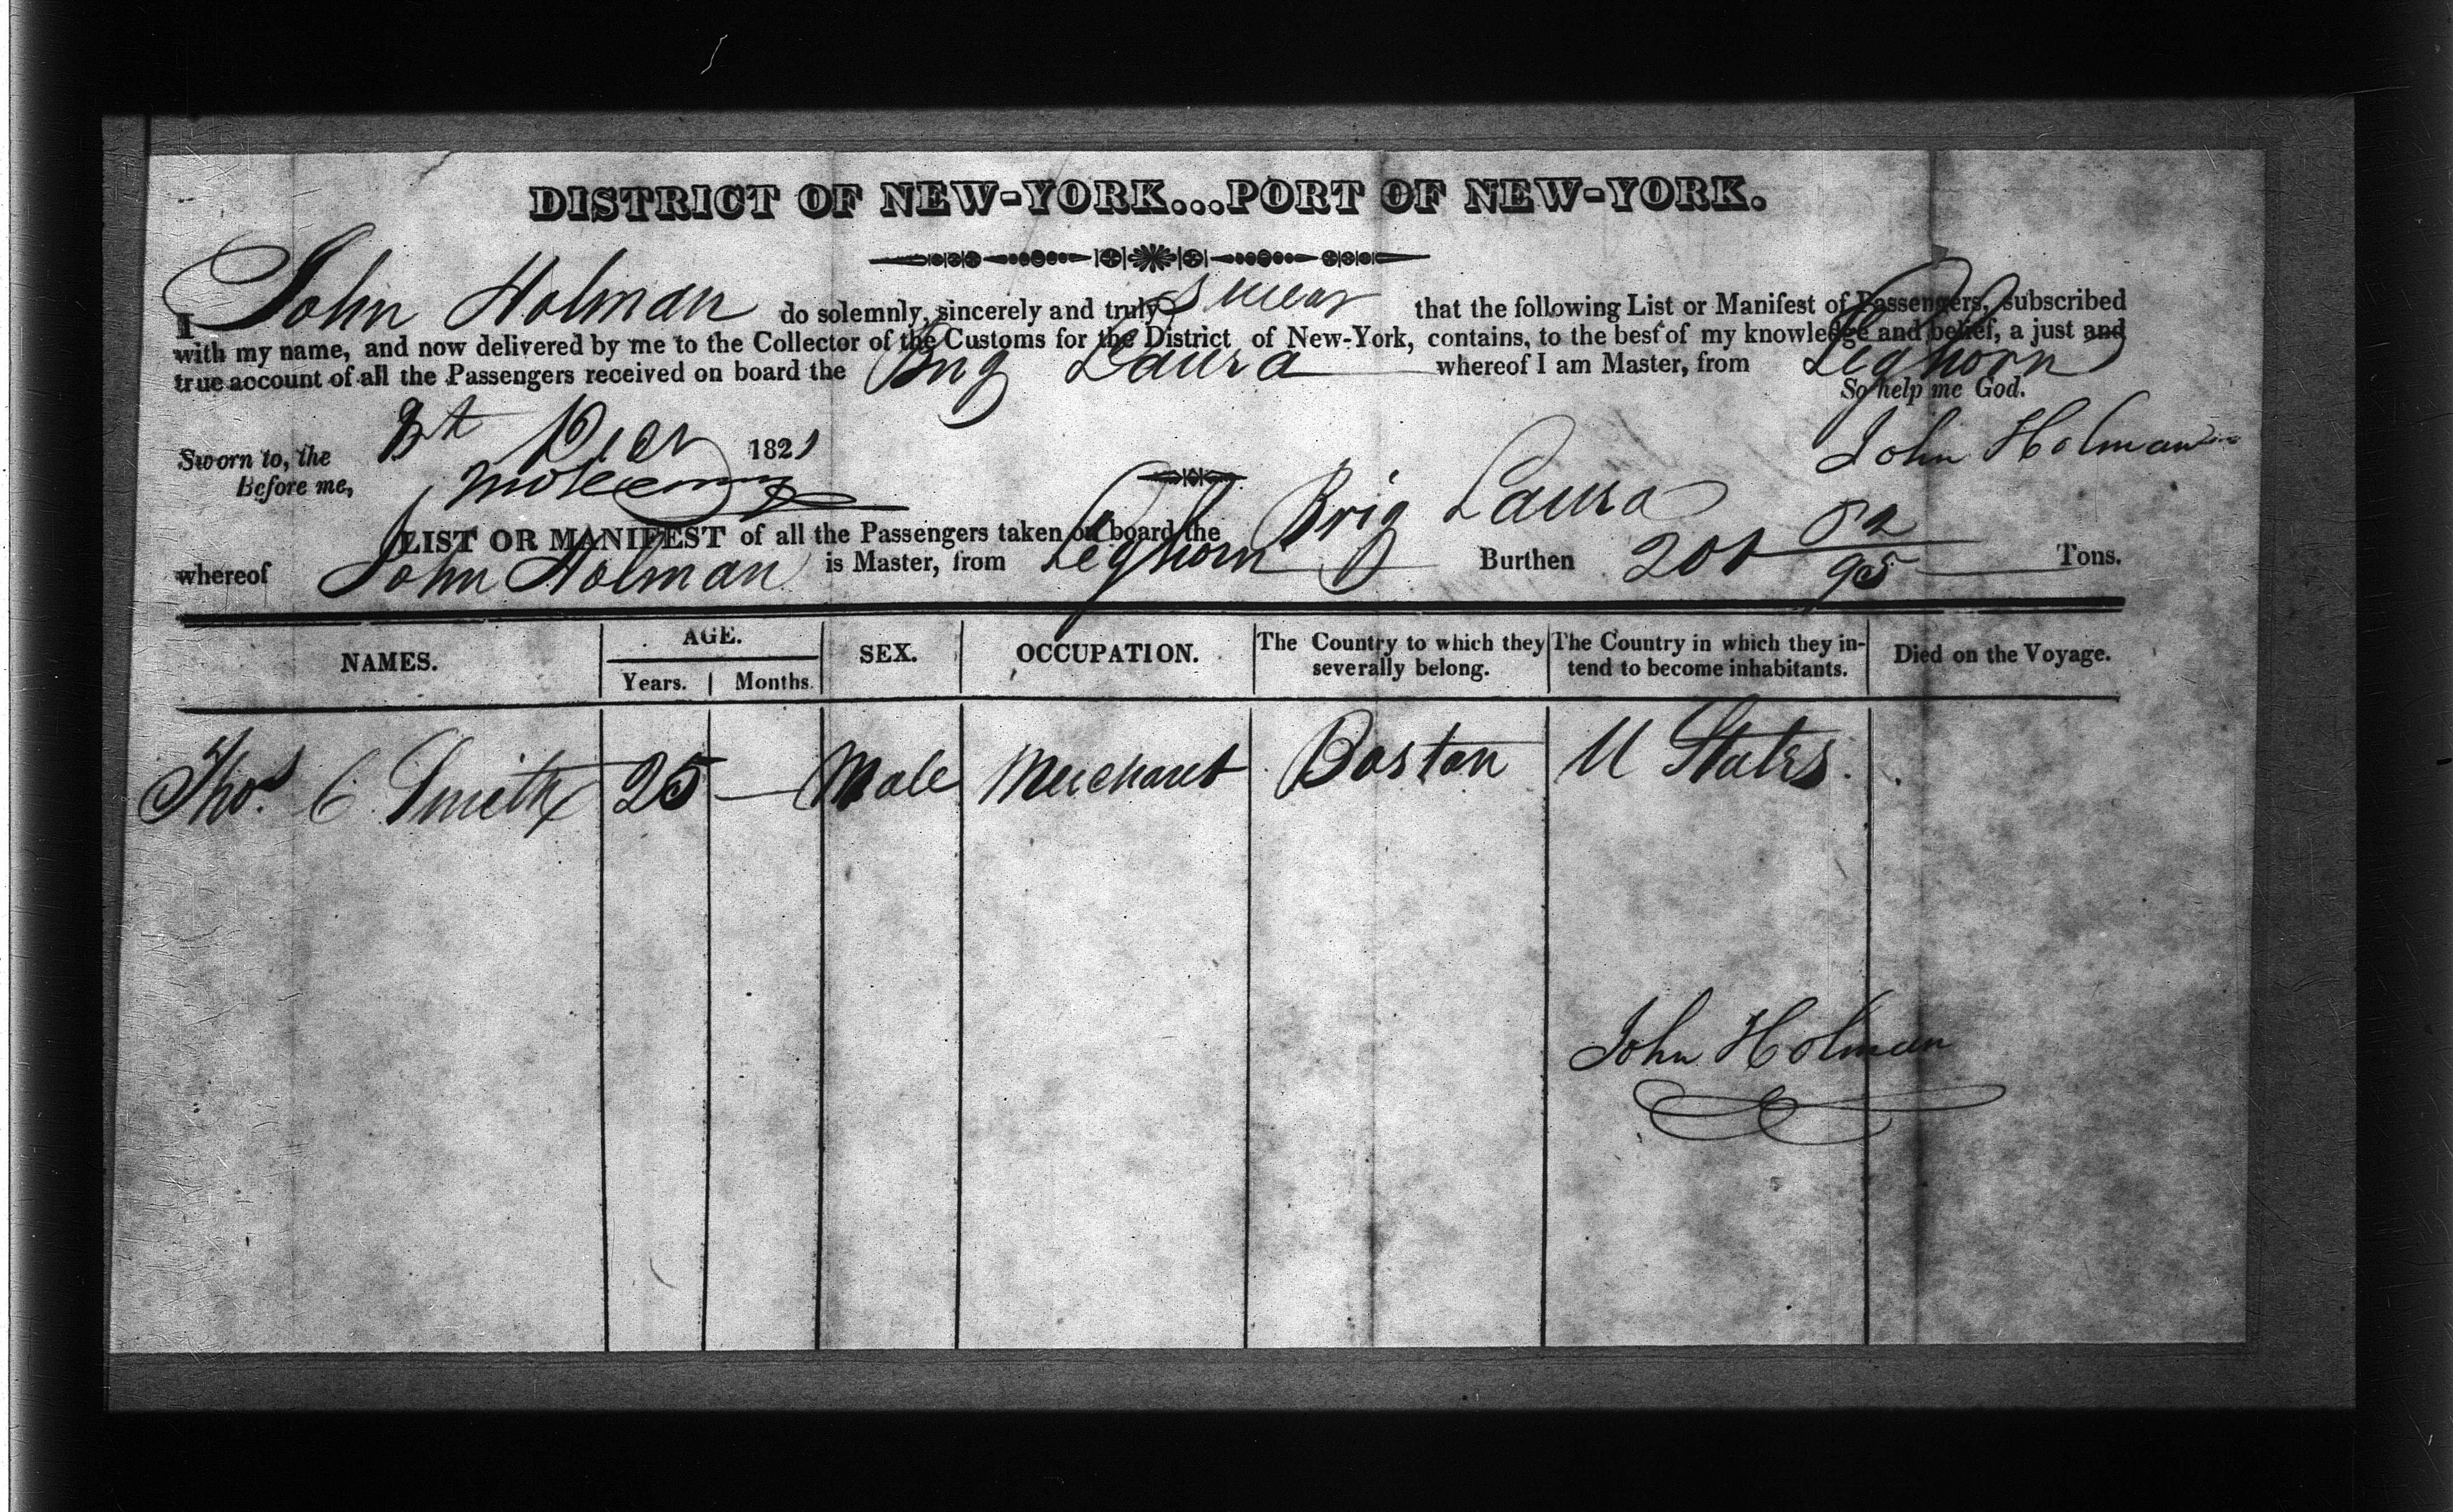 DISTRICT OF NEW-YORK...PORT OF NEW-YORK.
I John Holman do solemnly, sincerely and truly swear that the following List or Manifest of Passengers, subscribed
with my name, and now delivered by me to the Collector of the Customs for the District of New-York, contains, to the best of my knowledge and belief, a just and
true account of all the Passengers received on board the Brig Laura whereof I am Master, from Leghorn
So help me God.
Sworn to, the 1821 John Holman
Before me,
LIST OR MANIFEST of all the Passengers taken on board the Brig Laura
whereof John Holman is Master, from Leghorn Burthen 201 52/95 Tons.
NAMES. AGE. Years. Months. SEX. OCCUPATION. The Country to which they severally belong. The Country in which they intend to become inhabitants. Died on the Voyage.
Thos. C. Smith 25 — Male Merchant Boston U States.
John Holman